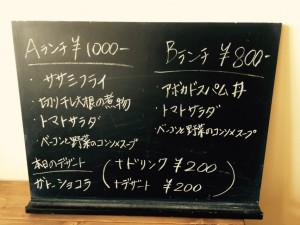 Aランチ ¥1000-
・ササミフライ
・切り干し大根の煮物
・トマトサラダ
・ベーコンと野菜のコンソメスープ
Bランチ ¥800-
・アボカドスパム丼
・トマトサラダ
・ベーコンと野菜のコンソメスープ
本日のデザート
ガトーショコラ
(+ドリンク ¥200
+デザート ¥200)